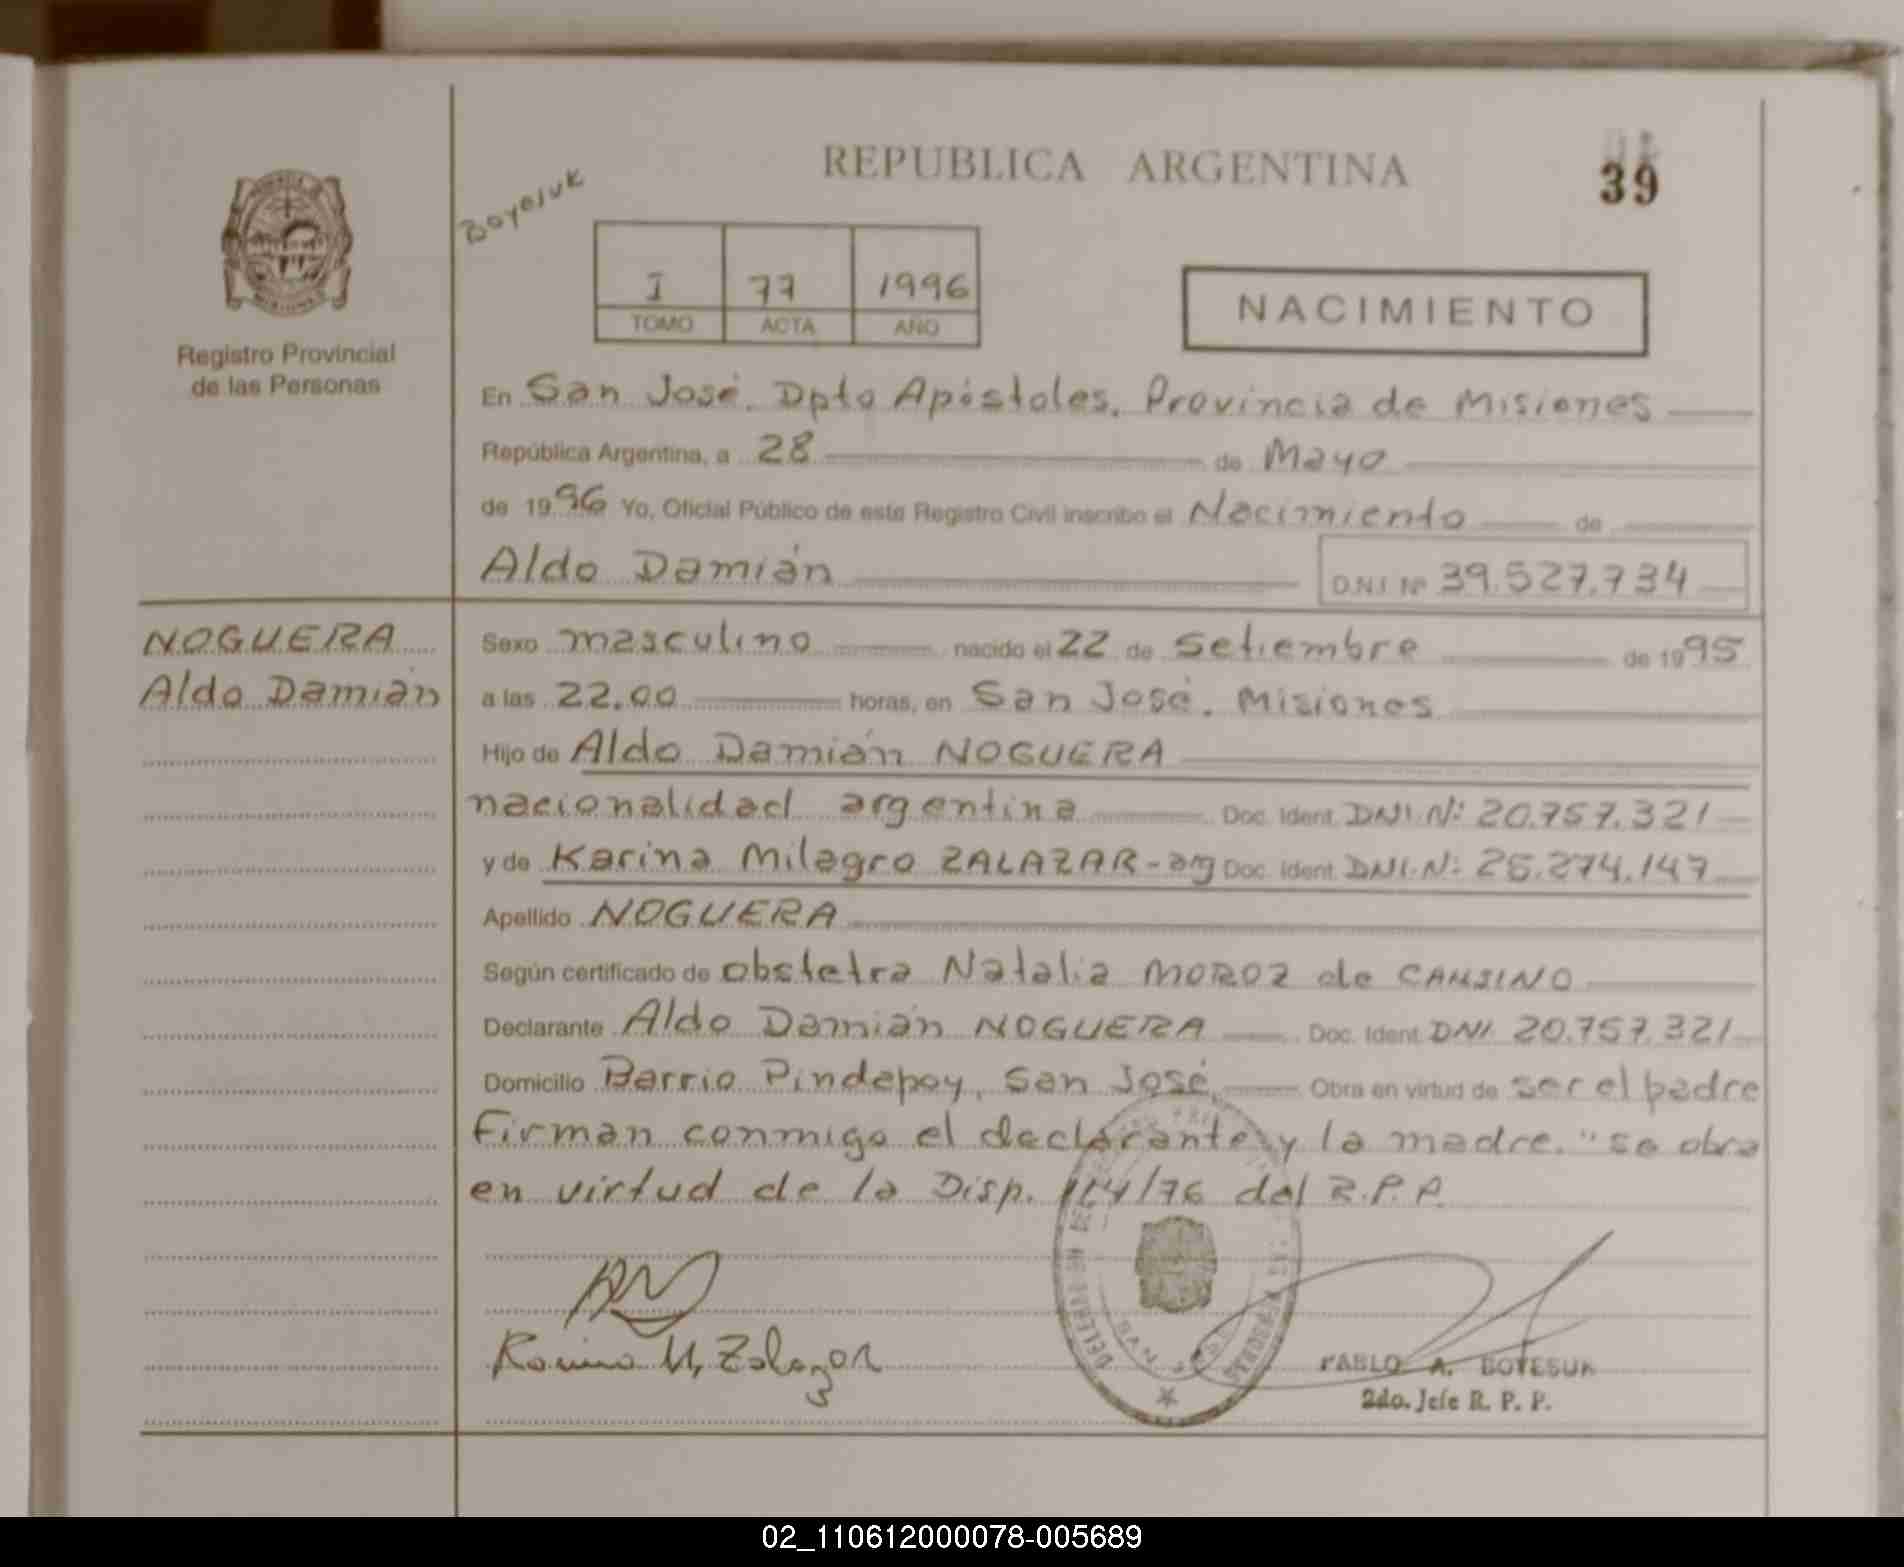 REPUBLICA ARGENTINA
39
Boyesuk
I 77 1996
TOMO ACTA AÑO
NACIMIENTO
Registro Provincial
de las Personas
En San José. Dpto Apóstoles. Provincia de Misiones
República Argentina, a 28 de Mayo
de 1996 Yo, Oficial Público de este Registro Civil inscribo el Nacimiento de
Aldo Damián D.N.I. Nº 39.527.734
NOGUERA
Aldo Damián
Sexo masculino nacido el 22 de Setiembre de 1995
a las 22.00 horas, en San José. Misiones
Hijo de Aldo Damián NOGUERA
nacionalidad argentina Doc. Ident. DNI.Nº: 20.757.321
y de Karina Milagro ZALAZAR-arg Doc. Ident. DNI.Nº: 25.274.147
Apellido NOGUERA
Según certificado de obstetra Natalia MOROZ de CANSINO
Declarante Aldo Damián NOGUERA Doc. Ident. DNI. 20.757.321
Domicilio Barrio Pindapoy, San José, Obra en virtud de ser el padre
Firman conmigo el declarante y la madre. "se obra
en virtud de la Disp. 114/76 del R.P.P.
PABLO A. BOYESUK
2do. Jefe R. P. P.
02_110612000078-005689